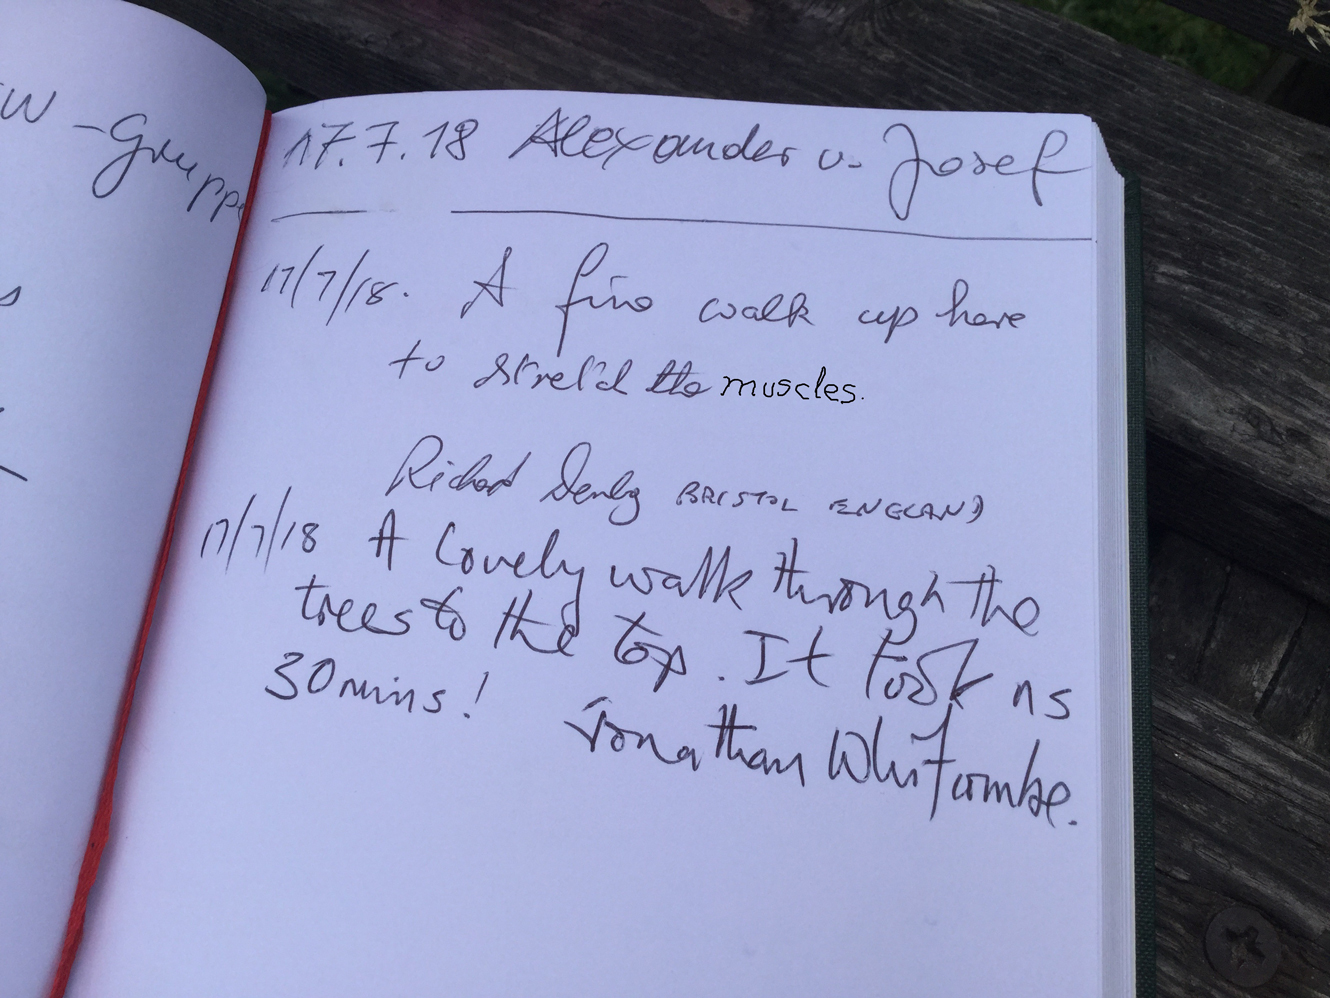 W-Gruppe
17.7.18 Alexander v. Josef
17/7/18. A fine walk up here
to stretch the muscles.
Richard Denby BRISTOL ENGLAND
17/7/18 A lovely walk through the
trees to the top. It took us
30 mins! Jonathan Whitcombe.